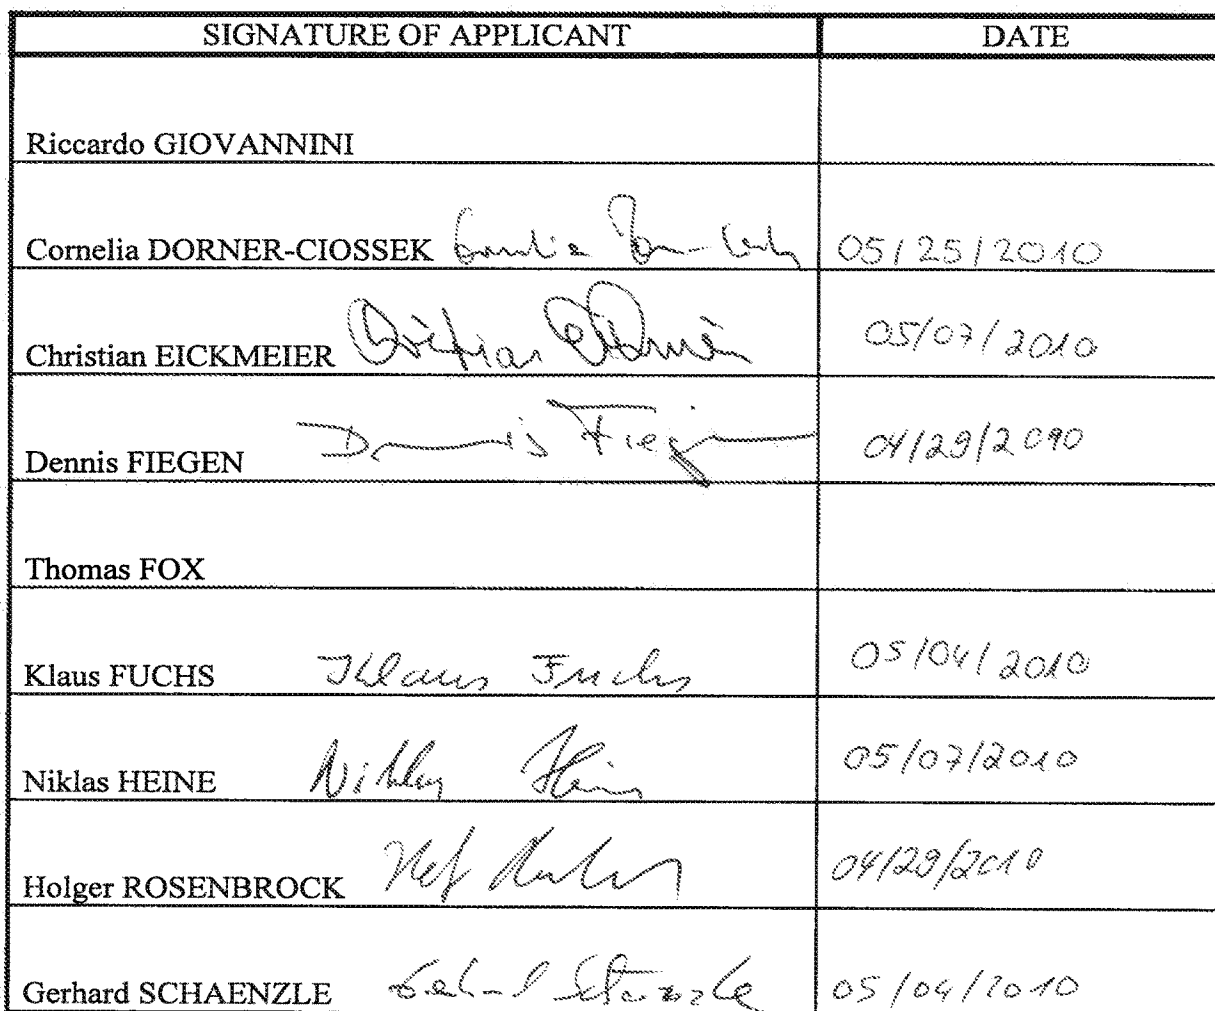 SIGNATURE OF APPLICANT DATE
Riccardo GIOVANNINI
Cornelia DORNER-CIOSSEK 05/25/2010
Christian EICKMEIER 05/07/2010
Dennis FIEGEN Dennis Fiegen 04/29/2010
Thomas FOX
Klaus FUCHS Klaus Fuchs 05/04/2010
Niklas HEINE Niklas Heine 05/07/2010
Holger ROSENBROCK 04/29/2010
Gerhard SCHAENZLE 05/04/2010